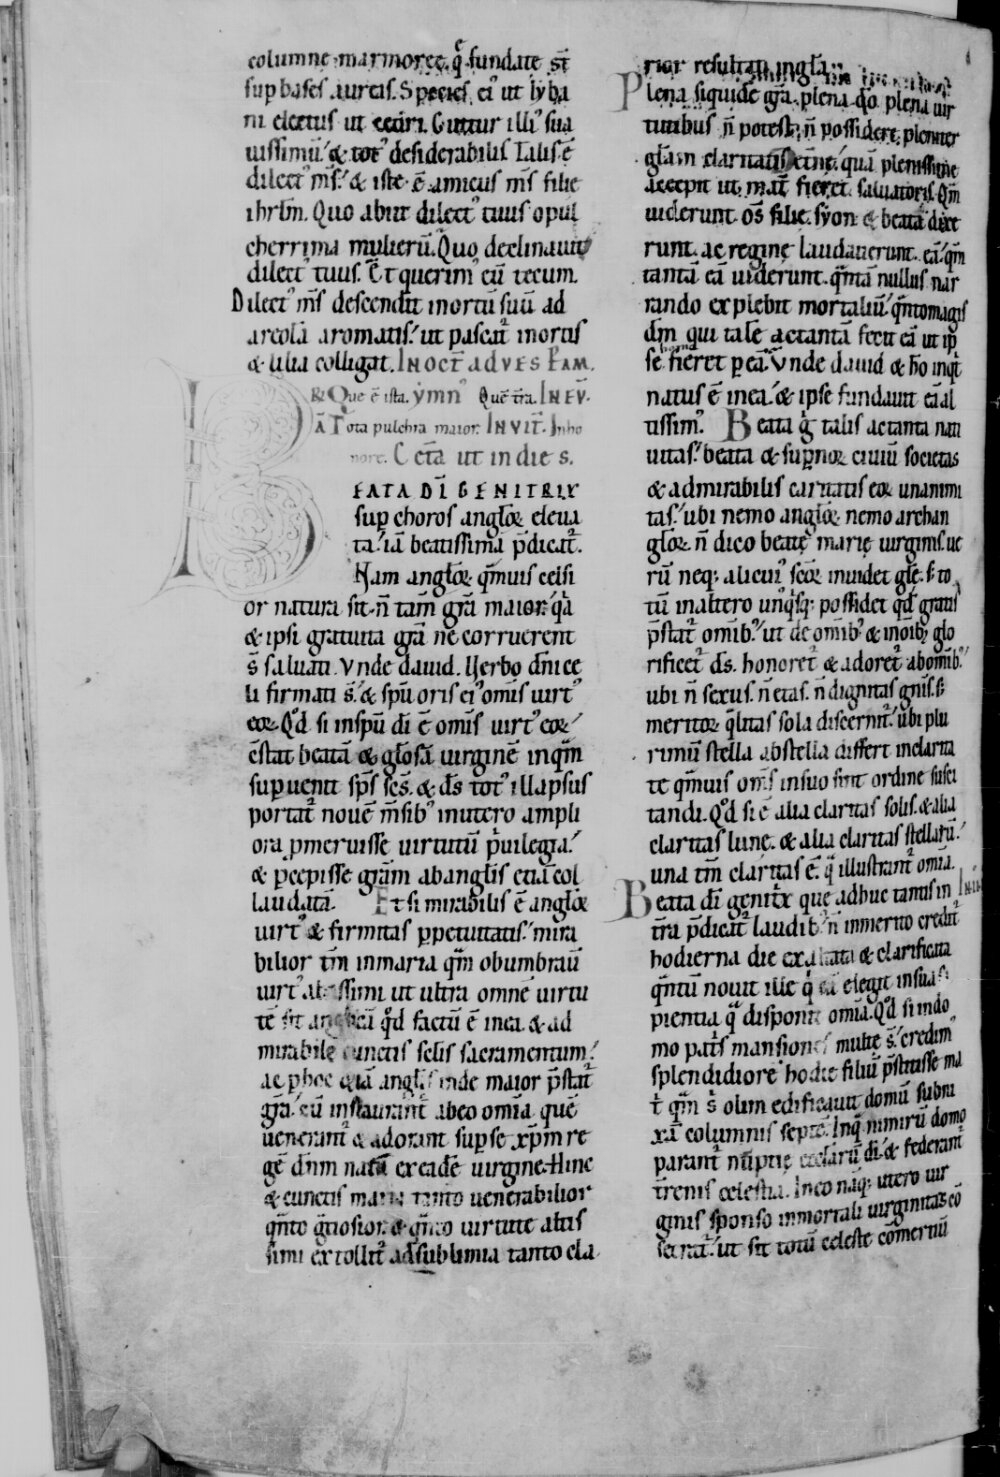 columne marmoreę. q̄ fundate st̄
sup bases aureas. Species ei᾽ ut lyba
ni electus ut cedri. Guttur illi᾽ sua
uissimū. & tot᾽ desiderabilis Talis ē
dilect᾽ m̄s. & iste ē amicus m̄s filie
ihrlm̄. Quo abiit dilect᾽ tuus o pul
cherrima mulierū. Quo declinauit
dilect᾽ tuus. Et querim᾽ eū tecum.
Dilect᾽ m̄s descendit in ortū suū ad
areolā aromatis. ut pascat̄ in ortis
& lilia colligat. IN OCT̄ AD VES FAM.
R Que ē ista. ymn᾽ Quē t̄ra. IN EV̄.
A Tota pulchra maior. INVIT̄. In ho
nore. Cetā ut in die s.
BEATA DĪ GENITRIX
sup choros anglōꝝ eleua
ta. iā beatissima p̄dicat̄.
Nam anglōꝝ q̄muis celsi
or natura sit. n̄ tam̄ gr̄a maior. q̄a
& ipsi gratuita gr̄a ne corruerent
s̄ saluati. Vnde dauid. Uerbo dn̄i ce
li firmati s̄. & spū oris ei᾽ omīs uirt᾽
eoꝝ. Qd̄ si in spū dī ē omīs uirt᾽ eoꝝ
ēstat beatā & glōsā uirginē in q̄m
supuenit sp̄s sc̄s. & dꝰ tot᾽ illapsus
portat̄ nouē m̄sib᾽ in utero ampli
ora pmeruisse uirtutū p̄uilegia.
& pcepisse grām ab anglis etiā col
laudatā. Et si mirabilis ē anglōꝝ
uirt᾽ & firmitas ppetuitatis. mira
bilior tm̄ in maria q̄m obumbrau̅
uirt᾽ altissimi ut ultra omnē uirtu
tē sit angelicā qd̄ factū ē in ea. & ad
mirabilē cunctis selis sacramentum.
ac p hoc etiā anglis inde maior p̄stat̄
gr̄a. cū instaurant̄ ab eo omīa quē
uenerant̄ & adorant sup se xp̄m re
gē dn̄m natū ex eadē uirgine. Hinc
& cunctis maria tanto uenerabilior
q̄nto gr̄iosior. & q̄nto uirtute altis
simi extollit̄ ad sublimia tanto cla
rior resultat in glīa.
Plena siquidē gr̄a. plena dō. plena uir
tutibus n̄ potest n̄ possidere. pleniter
glām claritatis etnę. quā plenissime
accepit ut mat̄ fieret saluatoris. Qm̄
uiderunt os̄ filie syon & beatā dixe
runt. ac reginę laudauerunt eā. q̄m
tantā eā uiderunt. q̄ntā nullus nar
rando explebit mortaliū. q̄ntomagis
dm̄ qui talē ac tantā fecit eā ut ip
se fieret p eā. Vnde dauid & hō inq̄t
natus ē in ea. & ipse fundauit eā al
tissim᾽. Beata g̊ talis ac tanta nati
uitas. beata & supnoꝝ ciuiū societas
& admirabilis caritatis eoꝝ unanimi
tas. ubi nemo anglōꝝ nemo archan
gloꝝ. n̄ dico beatę marię uirginis ue
rū neq; alicui᾽ sc̄oꝝ inuidet glę. s; to
tū in altero unq̄sq; possidet qd̄ gratis
p̄stat̄ omīb᾽. ut de omīb᾽ & in oīb; glo
rificet̄ ds̄. honoret̄ & adoret̄ ab omīb᾽.
ubi n̄ sexus. n̄ etas. n̄ dignitas gn̄is. s;
meritoꝝ q̄litas sola discernit̄. ubi plu
rimū stella ab stella differt in clarita
te q̄muis omīs in suo sint ordine susci
tandi. Qd̄ si ē alia claritas solis. & alia
claritas lunę. & alia claritas stellarū.
una tm̄ claritas ē. q̄ illustrant̄ omīa.
Beata dī genit̄x que adhuc tantis in
t̄ra p̄dicat̄ laudib᾽. n̄ inmerito credit̄
hodierna die exaltata & clarificata
q̄ntū nouit ille q̄ eā elegit in sua sa
pientia q̄ disponit omīa. Qd̄ si in do
mo pat̄s mansiones multę s̄. credim᾽
splendidiorē hodie filiū p̄stitisse ma
t̄ q̄m s̄ olim edificauit domū subni
xā columnis septē. Inq̄ nimirū domo
parant̄ nuptię ecclarū dī. & federant̄
t̄renis celestia. In eo naq; utero uir
ginis sponso inmortali uirginitas eō
secrat̄. ut sit totū celeste cōmerciū